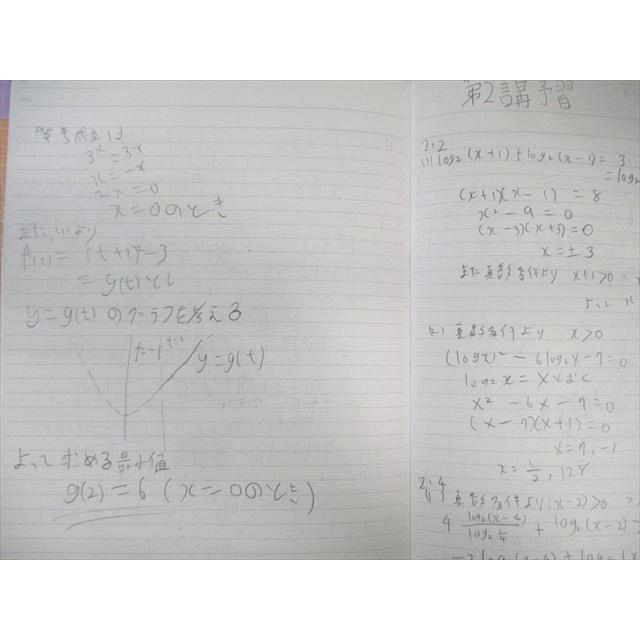 等号成立は
3^x = 3^-x
x = -x
2x = 0
x = 0のとき
また, (1)より
f(x) = (t+1)²-3
= g(t)とし
y = g(t) のグラフを考える
t=-1 t=2 y=g(t)
よって求める最小値
g(2) = 6 (x = 0のとき)
第2講予習
2.2
(1) log₂(x+1) + log₂(x-1) = 3
= log₂
(x+1)(x-1) = 8
x² - 9 = 0
(x-3)(x+3) = 0
x = ±3
また真数条件より x+1>0
よって x
真数条件より x>0
(log₂x)² - 6log₂x - 7 = 0
log₂x = Xとおく
X² - 6X - 7 = 0
(X-7)(X+1) = 0
X = 7, -1
x = 1/2, 128
2.4
(1) 真数条件より (x-2)>0
4 log₂(x-4)/log₂ 1/4 + log₂(x-2)